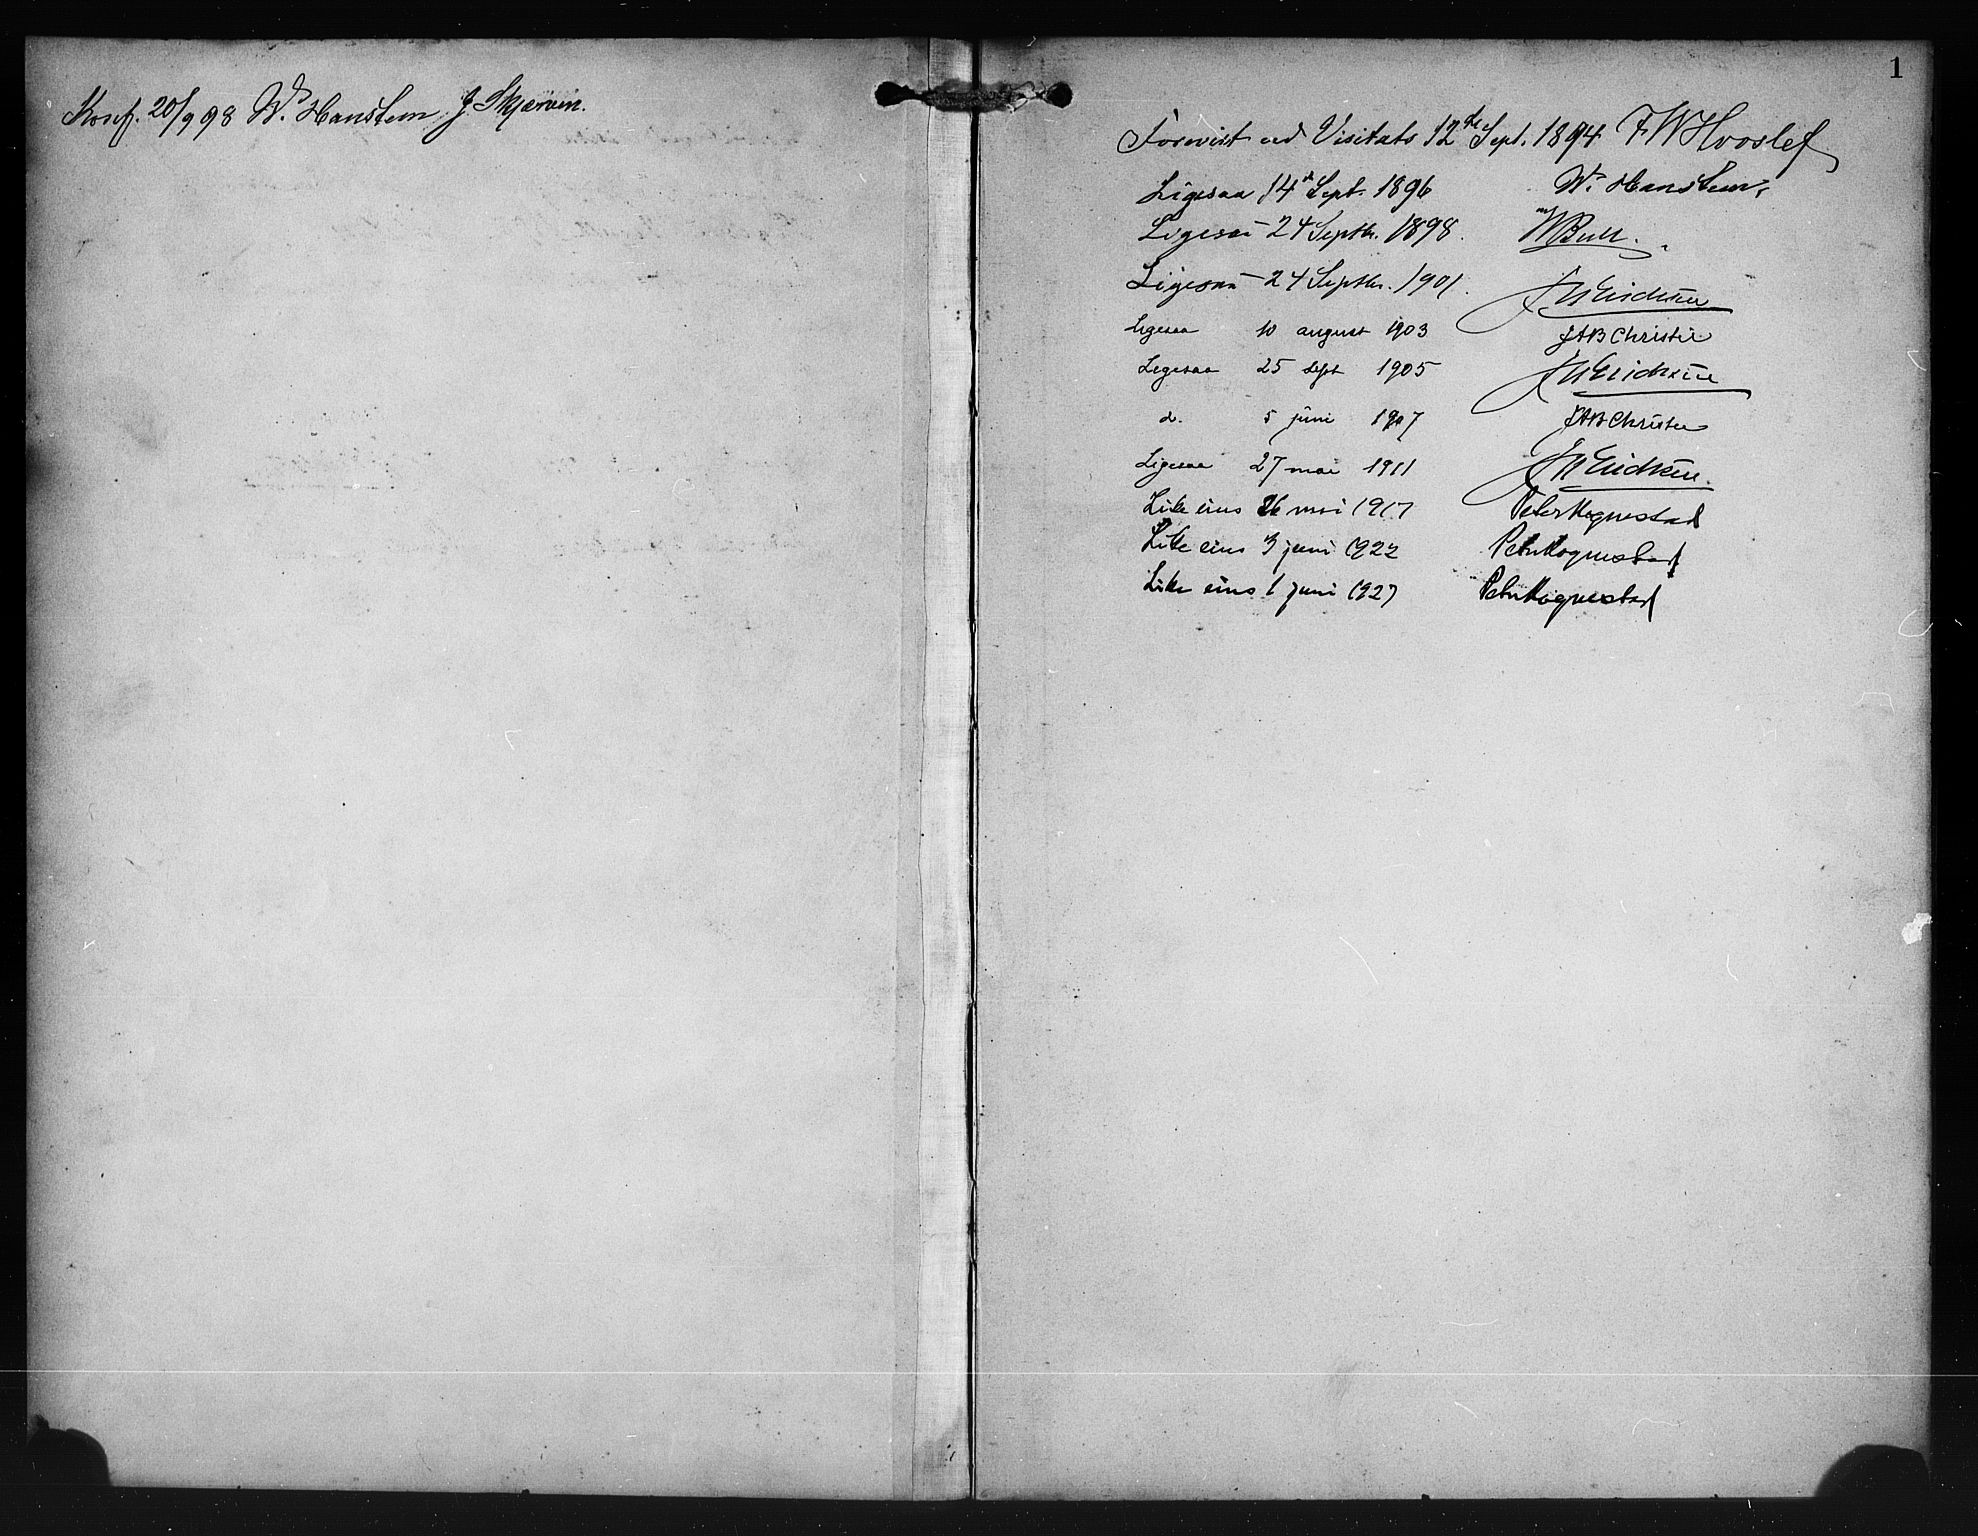 Konf. 20/9 98 W. Hanstem J. Skjerven.
1
Forevist ved Visitats 12te Sept. 1894 FWHvoslef
Ligesaa 14d Sept. 1896 W. Hanstem,
Ligesaa – 24 Septbr. 1898. WBull.
Ligesaa – 24 Septbr. 1901. JWErichsen
Ligesaa 10 august 1903 JABChristie
Ligesaa 25 sept 1905 JWErichsen
d. 5 juni 1907 JABChristie
Ligesaa 27 mai 1911 JWErichsen.
Like eins 26 mai 1917 Peter Hognestad
Like eins 3 juni 1922 Peter Hognestad
Like eins 1 juni 1927 Peter Hognestad